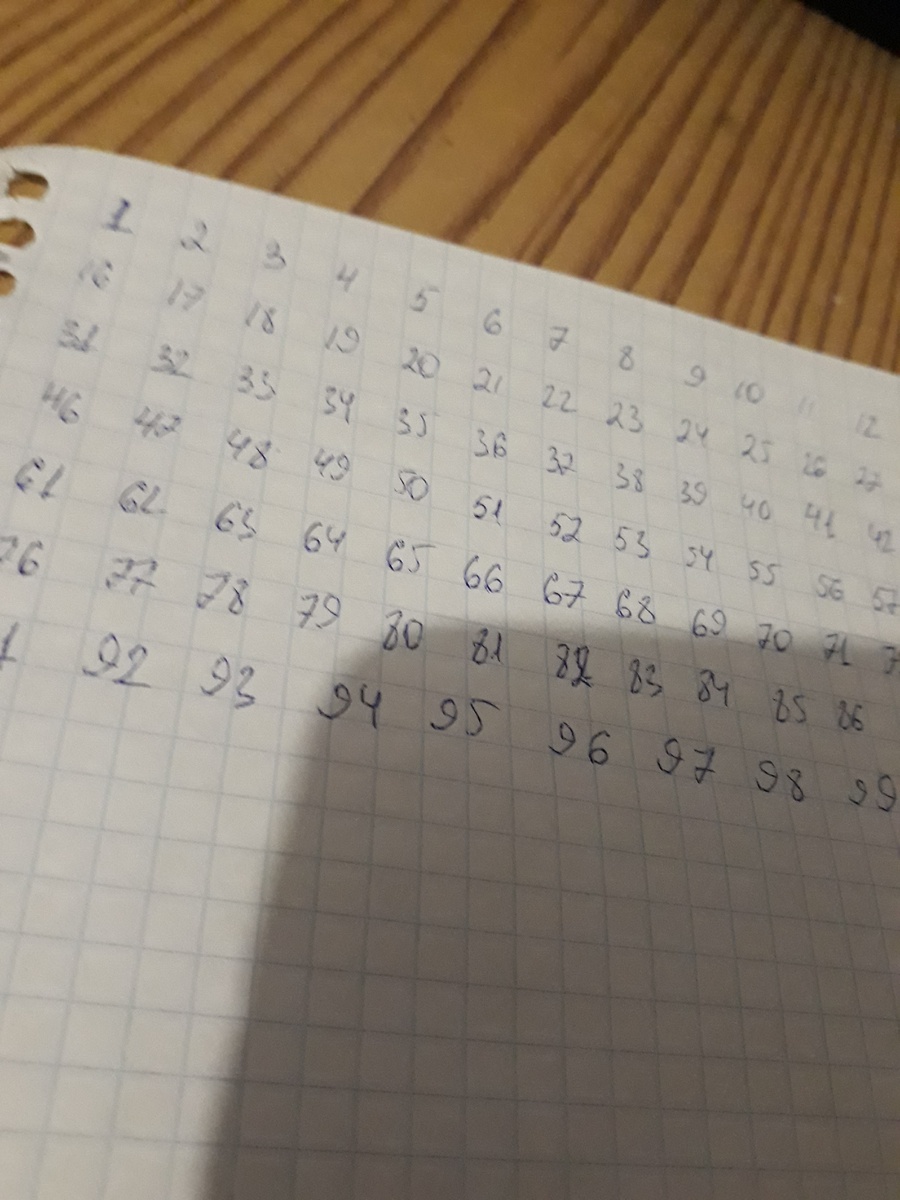 1 2 3 4 5 6 7 8 9 10 11 12
16 17 18 19 20 21 22 23 24 25 26 27
31 32 33 34 35 36 37 38 39 40 41 42
46 47 48 49 50 51 52 53 54 55 56 57
61 62 63 64 65 66 67 68 69 70 71
76 77 78 79 80 81 82 83 84 85 86
92 93 94 95 96 97 98 99